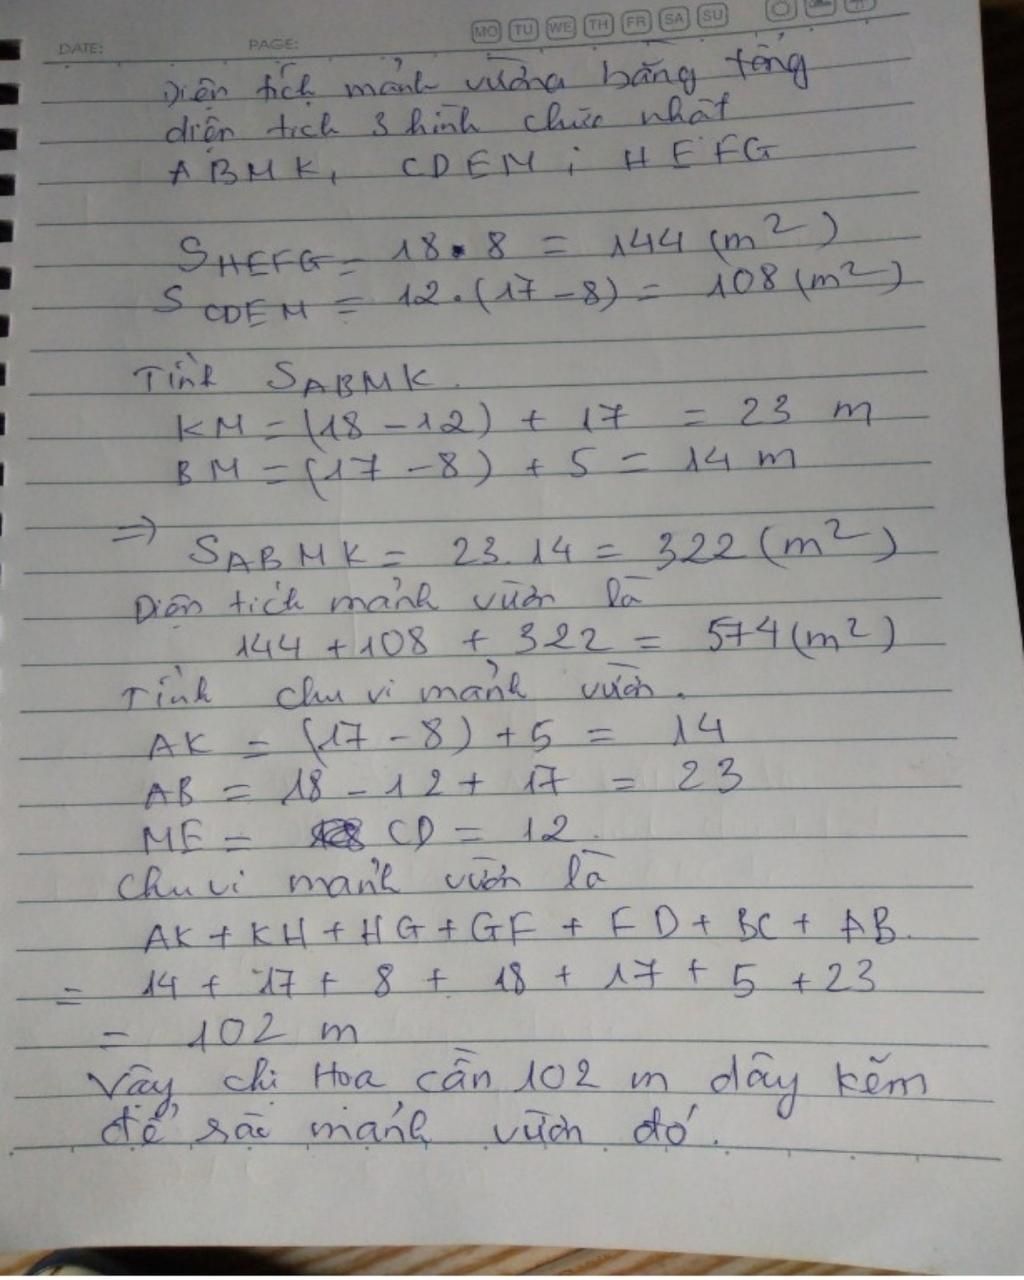 MO TU WE TH FR SA SU
DATE: PAGE:
Diện tích mảnh vườn bằng tổng
diện tích 3 hình chữ nhật
ABMK, CDEM; HEFG
SHEFG = 18.8 = 144 (m²)
SCDEM = 12.(17-8) = 108 (m²)
Tính SABMK.
KM = (18-12) + 17 = 23 m
BM = (17-8) + 5 = 14 m
=> SABMK = 23.14 = 322 (m²)
Diện tích mảnh vườn là
144 + 108 + 322 = 574 (m²)
Tính chu vi mảnh vườn.
AK = (17-8) + 5 = 14
AB = 18 - 12 + 17 = 23
ME = CD = 12.
Chu vi mảnh vườn là
AK + KH + HG + GF + FD + BC + AB.
= 14 + 17 + 8 + 18 + 17 + 5 + 23
= 102 m
Vậy chị Hoa cần 102 m dây kẽm
để rào mảnh vườn đó.